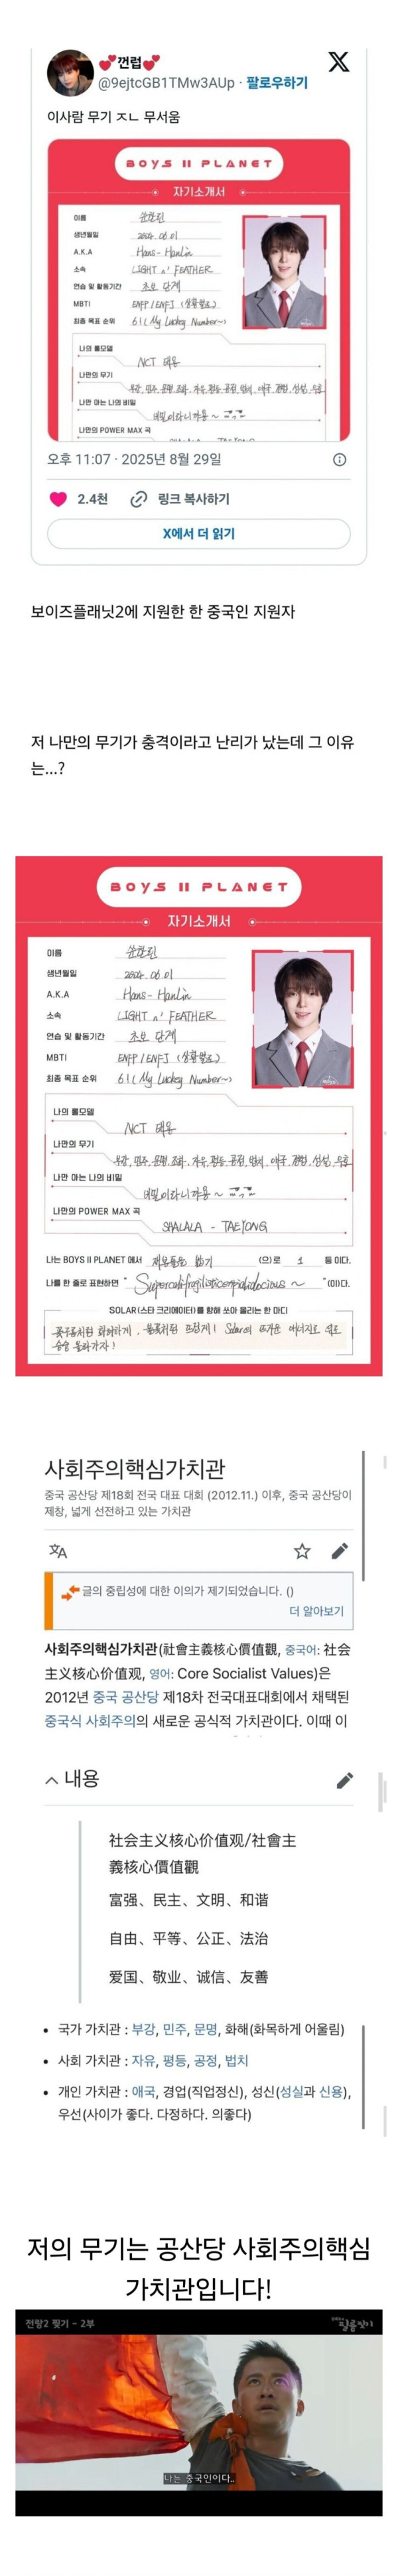 💕껀럽💕
@9ejtcGB1TMw3AUp · 팔로우하기
이사람 무기 ㅈㄴ 무서움
BOYS II PLANET
자기소개서
이름 순한린
생년월일
A.K.A Hans-Hanlin
소속 LIGHT n' FEATHER
연습 및 활동기간 초보 단계
MBTI ENFP / ENFJ (상황별로)
최종 목표 순위 6! (My Lucky Number~)
나의 롤모델
NCT 태용
나만의 무기
부강, 민주, 문명, 조화, 자유, 평등, 공정, 법치, 애국, 경업, 성실, 우호
나만 아는 나의 비밀
비밀이라니까용~
나만의 POWER MAX 곡
오후 11:07 · 2025년 8월 29일
2.4천 링크 복사하기
X에서 더 읽기
보이즈플래닛2에 지원한 한 중국인 지원자
저 나만의 무기가 충격이라고 난리가 났는데 그 이유
는...?
BOYS II PLANET
자기소개서
이름 순한린
생년월일
A.K.A Hans-Hanlin
소속 LIGHT n' FEATHER
연습 및 활동기간 초보 단계
MBTI ENFP / ENFJ (상황별로)
최종 목표 순위 6! (My Lucky Number~)
나의 롤모델
NCT 태용
나만의 무기
부강, 민주, 문명, 조화, 자유, 평등, 공정, 법치, 애국, 경업, 성실, 우호
나만 아는 나의 비밀
비밀이라니까용~
나만의 POWER MAX 곡
SHALALA - TAEYONG
나는 BOYS II PLANET 에서 (으)로 1 등 이다.
나를 한 줄로 표현하면 " ~ " (이)다.
SOLAR(스타 크리에이터)를 향해 쏘아 올리는 한 마디
꽃구름처럼 화려하게, 불꽃처럼 뜨겁게! Solar의 뜨거운 에너지로 위로
슝슝 올라가자!
사회주의핵심가치관
중국 공산당 제18회 전국 대표 대회 (2012.11.) 이후, 중국 공산당이
제창, 넓게 선전하고 있는 가치관
글의 중립성에 대한 이의가 제기되었습니다. ()
더 알아보기
사회주의핵심가치관(社會主義核心價值觀, 중국어: 社会
主义核心价值观, 영어: Core Socialist Values)은
2012년 중국 공산당 제18차 전국대표대회에서 채택된
중국식 사회주의의 새로운 공식적 가치관이다. 이때 이
내용
社会主义核心价值观/社會主
義核心價值觀
富强、民主、文明、和谐
自由、平等、公正、法治
爱国、敬业、诚信、友善
• 국가 가치관 : 부강, 민주, 문명, 화해(화목하게 어울림)
• 사회 가치관 : 자유, 평등, 공정, 법치
• 개인 가치관 : 애국, 경업(직업정신), 성신(성실과 신용),
우선(사이가 좋다. 다정하다. 의좋다)
저의 무기는 공산당 사회주의핵심
가치관입니다!
전랑2 찢기 - 2부
필름찢기
나는 중국인이다..